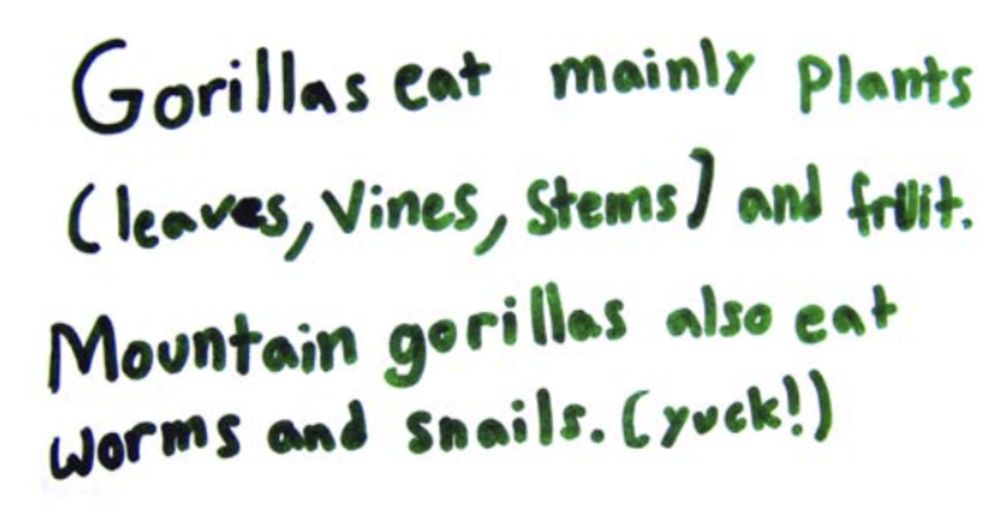 Gorillas eat mainly Plants
(leaves, Vines, Stems) and fruit.
Mountain gorillas also eat
worms and snails. (yuck!)